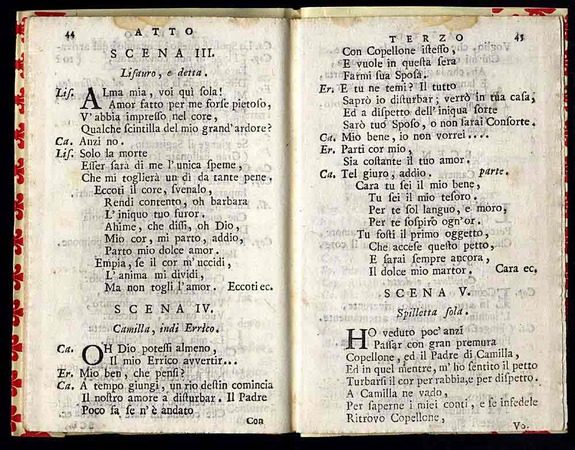 44 ATTO
SCENA III.
Lisauro, e detta.
Lis. ALma mia, voi quì sola!
Amor fatto per me forse pietoso,
V' abbia impresso nel core,
Qualche scintilla del mio grand'ardore?
Ca. Anzi no.
Lis. Solo la morte
Esser sarà di me l'unica speme,
Che mi toglierà un dì da tante pene.
Eccoti il core, svenalo,
Rendi contento, oh barbara
L' iniquo tuo furor.
Ahime, che dissi, oh Dio,
Mio cor, mi parto, addio,
Parto mio dolce amor.
Empia, se il cor m'uccidi,
L' anima mi dividi,
Ma non togli l'amor. Eccoti ec.
SCENA IV.
Camilla, indi Errico.
Ca. OH Dio potessi almeno,
Il mio Errico avvertir...
Er. Mio ben, che pensi?
Ca. A tempo giungi, un rio destin comincia
Il nostro amore a disturbar. Il Padre
Poco fa se n'è andato
Con
TERZO 45
Con Copellone istesso,
E vuole in questa sera
Farmi sua Sposa.
Er. E tu ne temi? Il tutto
Saprò io disturbar; verrò in tua casa,
Ed a dispetto dell'iniqua sorte
Sarò tuo Sposo, o non farai Consorte.
Ca. Mio bene, io non vorrei....
Er. Parti cor mio,
Sia costante il tuo amor.
Ca. Tel giuro, addio. parte.
Cara tu sei il mio bene,
Tu sei il mio tesoro.
Per te sol languo, e moro,
Per te sospiro ogn'or.
Tu fosti il primo oggetto,
Che accese questo petto,
E sarai sempre ancora,
Il dolce mio martor. Cara ec.
SCENA V.
Spilletta sola.
HO veduto poc' anzi
Passar con gran premura
Copellone, ed il Padre di Camilla,
Ed in quel mentre, m'ho sentito il petto
Turbarsi il cor per rabbia, e per dispetto.
A Camilla ne vado,
Per saperne i miei conti, e se infedele
Ritrovo Copellone,
Vo.